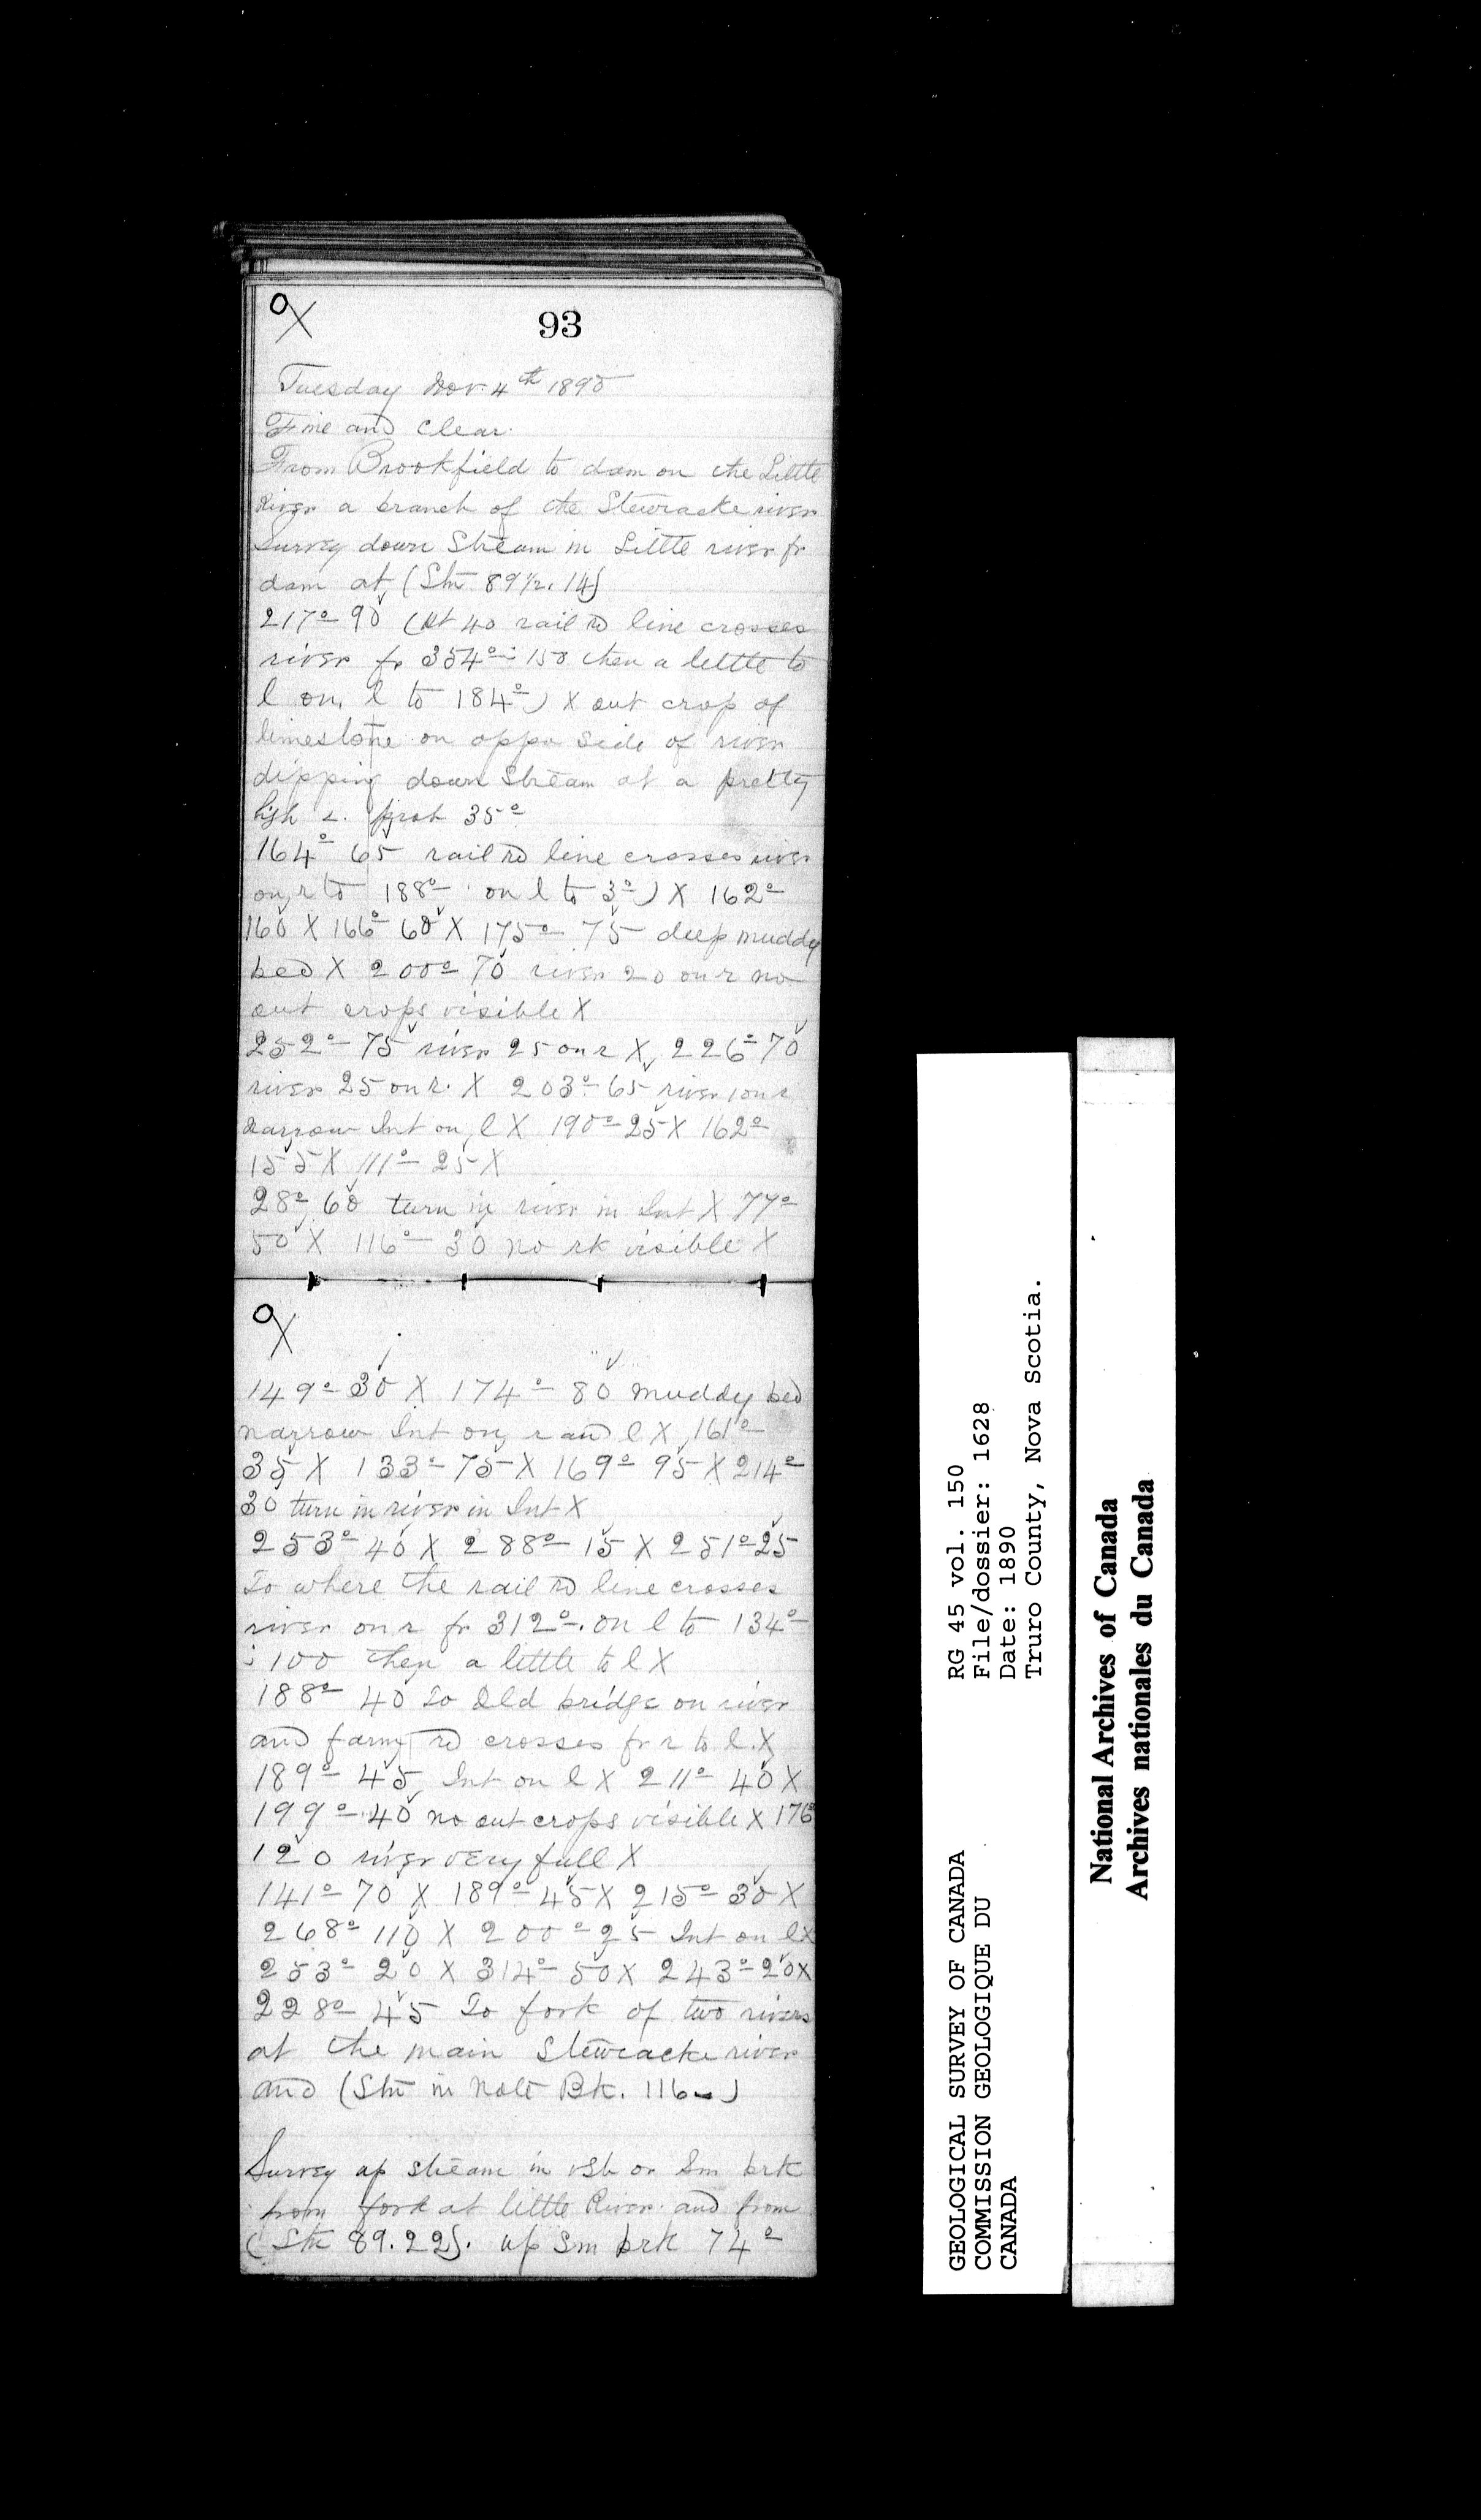 93
Tuesday Nov. 4th 1890
Fine and Clear.
From Brookfield to dam on the Little
River a branch of the Stewiacke river
Survey down Stream in Little river fr
dam at (Stn 89½. 14)
217° 90 (At 40 rail rd line crosses
river fr 354° : 150 then a little to
l on l to 184°) X out crop of
limestone on oppo side of river
dipping down Stream at a pretty
high 35°
164° 65 rail rd line crosses river
on r to 188° on l to 3°) X 162°
160 X 166° 60 X 175° 75 deep muddy
bed X 200° 70 river 20 on r no
out crops visible X
252° 75 river 25 on r X 226° 70
river 25 on r. X 203° 65 river on r
narrow Int on l X 190° 25 X 162°
155 X 111° 25 X
28° 60 turn in river in Int X 77°
50 X 116° 30 no rk visible X
149° 30 X 174° 80 muddy bed
narrow Int on r and l X 161°
35 X 133° 75 X 169° 95 X 214°
30 turn in river in Int X
253° 40 X 288° 15 X 251° 25
To where the rail rd line crosses
river on r fr 312°. on l to 134°
: 100 then a little to l X
188° 40 To Old bridge on river
and farm rd crosses fr r to l. X
189° 45 Int on l X 211° 40 X
199° 40 no out crops visible X 176°
120 river very full X
141° 70 X 189° 45 X 215° 30 X
268° 110 X 200° 25 Int on l X
253° 20 X 314° 50 X 243° 20 X
228° 45 To fork of two rivers
at the main Stewiacke river
and (Stn in Note Bk. 116)
Survey up stream in or Sm brk
from fork at little River and from
(Stn 89.22). up Sm brk 74°
GEOLOGICAL SURVEY OF CANADA
COMMISSION GEOLOGIQUE DU
CANADA
RG 45 vol. 150
File/dossier: 1628
Date: 1890
Truro County, Nova Scotia.
National Archives of Canada
Archives nationales du Canada